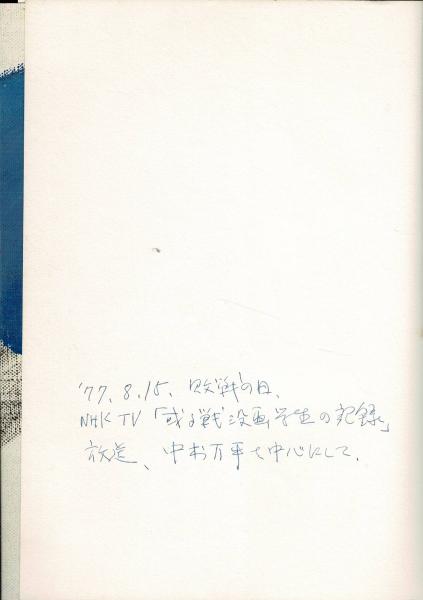 '77.8.15、敗戦の日、
NHK TV「或る戦没画学生の記録」
放送、中村万平を中心にして、